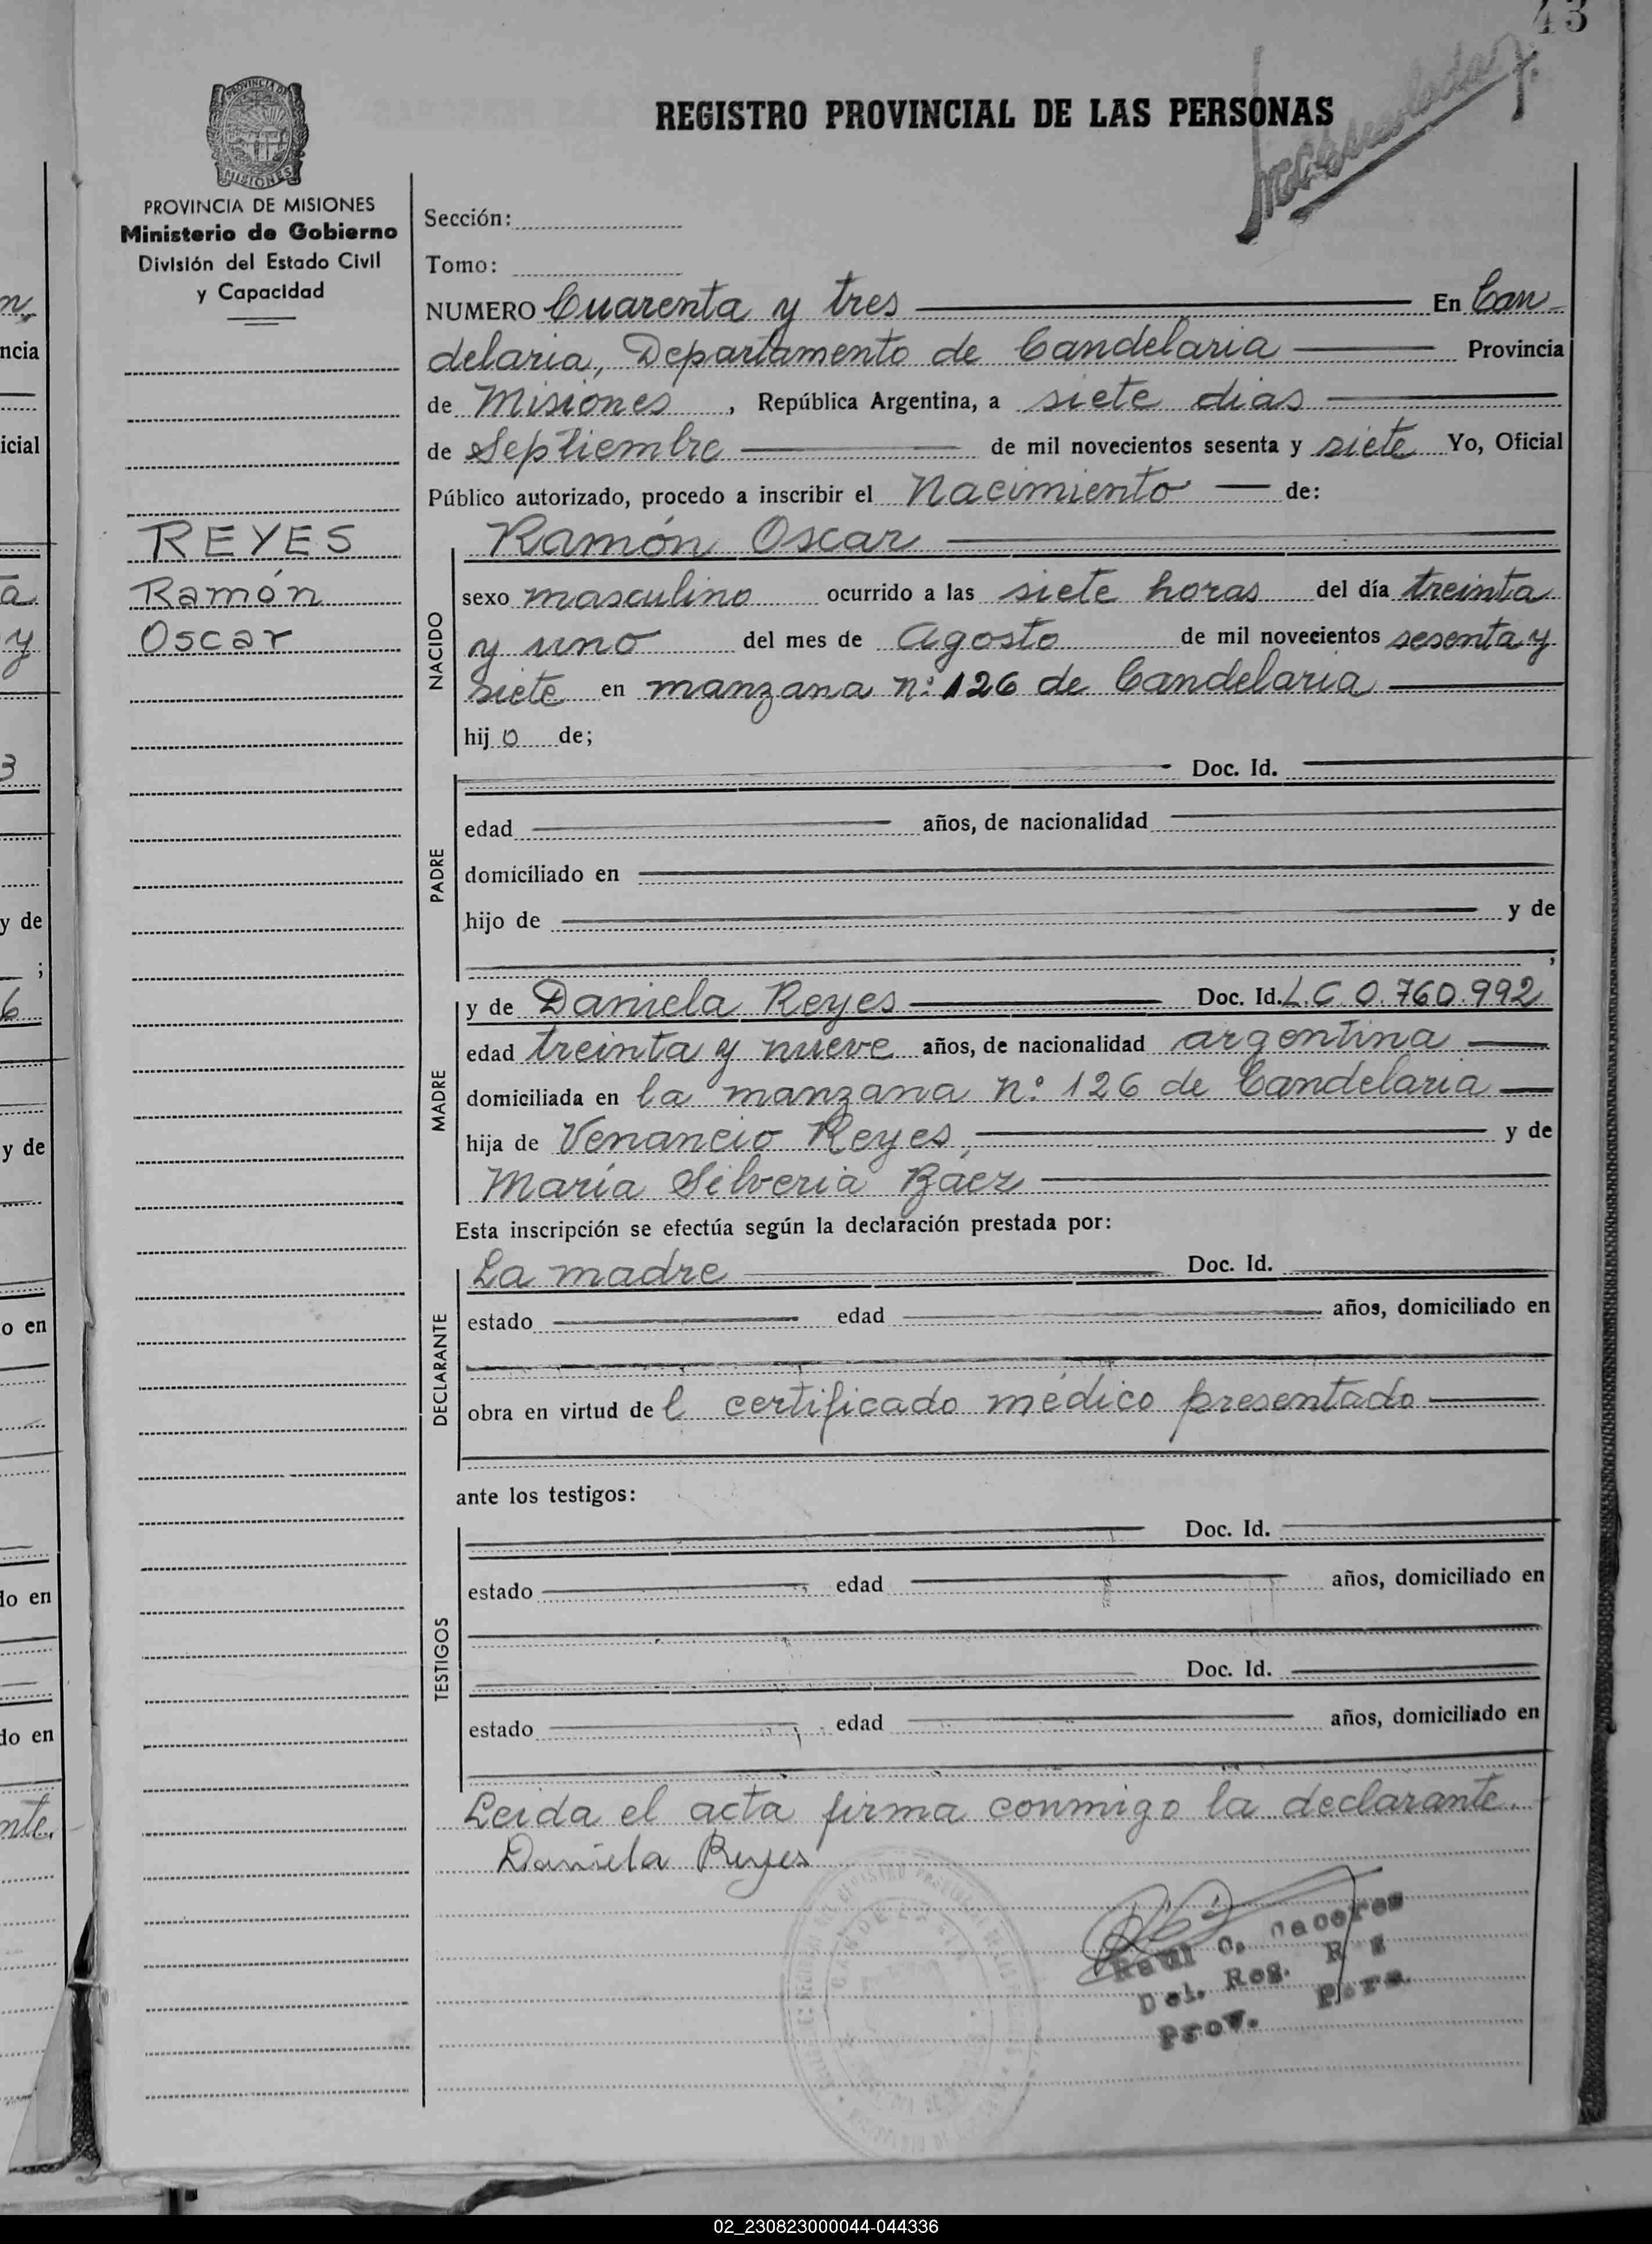 43
REGISTRO PROVINCIAL DE LAS PERSONAS
PROVINCIA DE
MISIONES
PROVINCIA DE MISIONES
Ministerio de Gobierno
División del Estado Civil
y Capacidad
REYES
Ramón
Oscar
Sección:
Tomo:
NUMERO Cuarenta y tres En Can-
delaria, Departamento de Candelaria Provincia
de Misiones, República Argentina, a siete dias
de Septiembre de mil novecientos sesenta y siete Yo, Oficial
Público autorizado, procedo a inscribir el Nacimiento de:
Ramón Oscar
NACIDO
sexo masculino ocurrido a las siete horas del día treinta
y uno del mes de Agosto de mil novecientos sesenta y
siete en manzana n° 126 de Candelaria
hijo de;
PADRE
Doc. Id.
edad años, de nacionalidad
domiciliado en
hijo de y de
;
MADRE
y de Daniela Reyes Doc. Id. L.C 0.760.992
edad treinta y nueve años, de nacionalidad argentina
domiciliada en la manzana n° 126 de Candelaria
hija de Venancio Reyes, y de
María Silveria Báez
Esta inscripción se efectúa según la declaración prestada por:
DECLARANTE
La madre Doc. Id.
estado edad años, domiciliado en
obra en virtud del certificado médico presentado
ante los testigos:
TESTIGOS
Doc. Id.
estado edad años, domiciliado en
Doc. Id.
estado edad años, domiciliado en
Leida el acta firma conmigo la declarante.
Daniela Reyes
Raul C. Caceres
Del. Reg.
Prov. Pers.
n
ncia
icial
a
y
3
y de
;
6
y de
o en
do en
do en
nte.
02_230823000044-044336